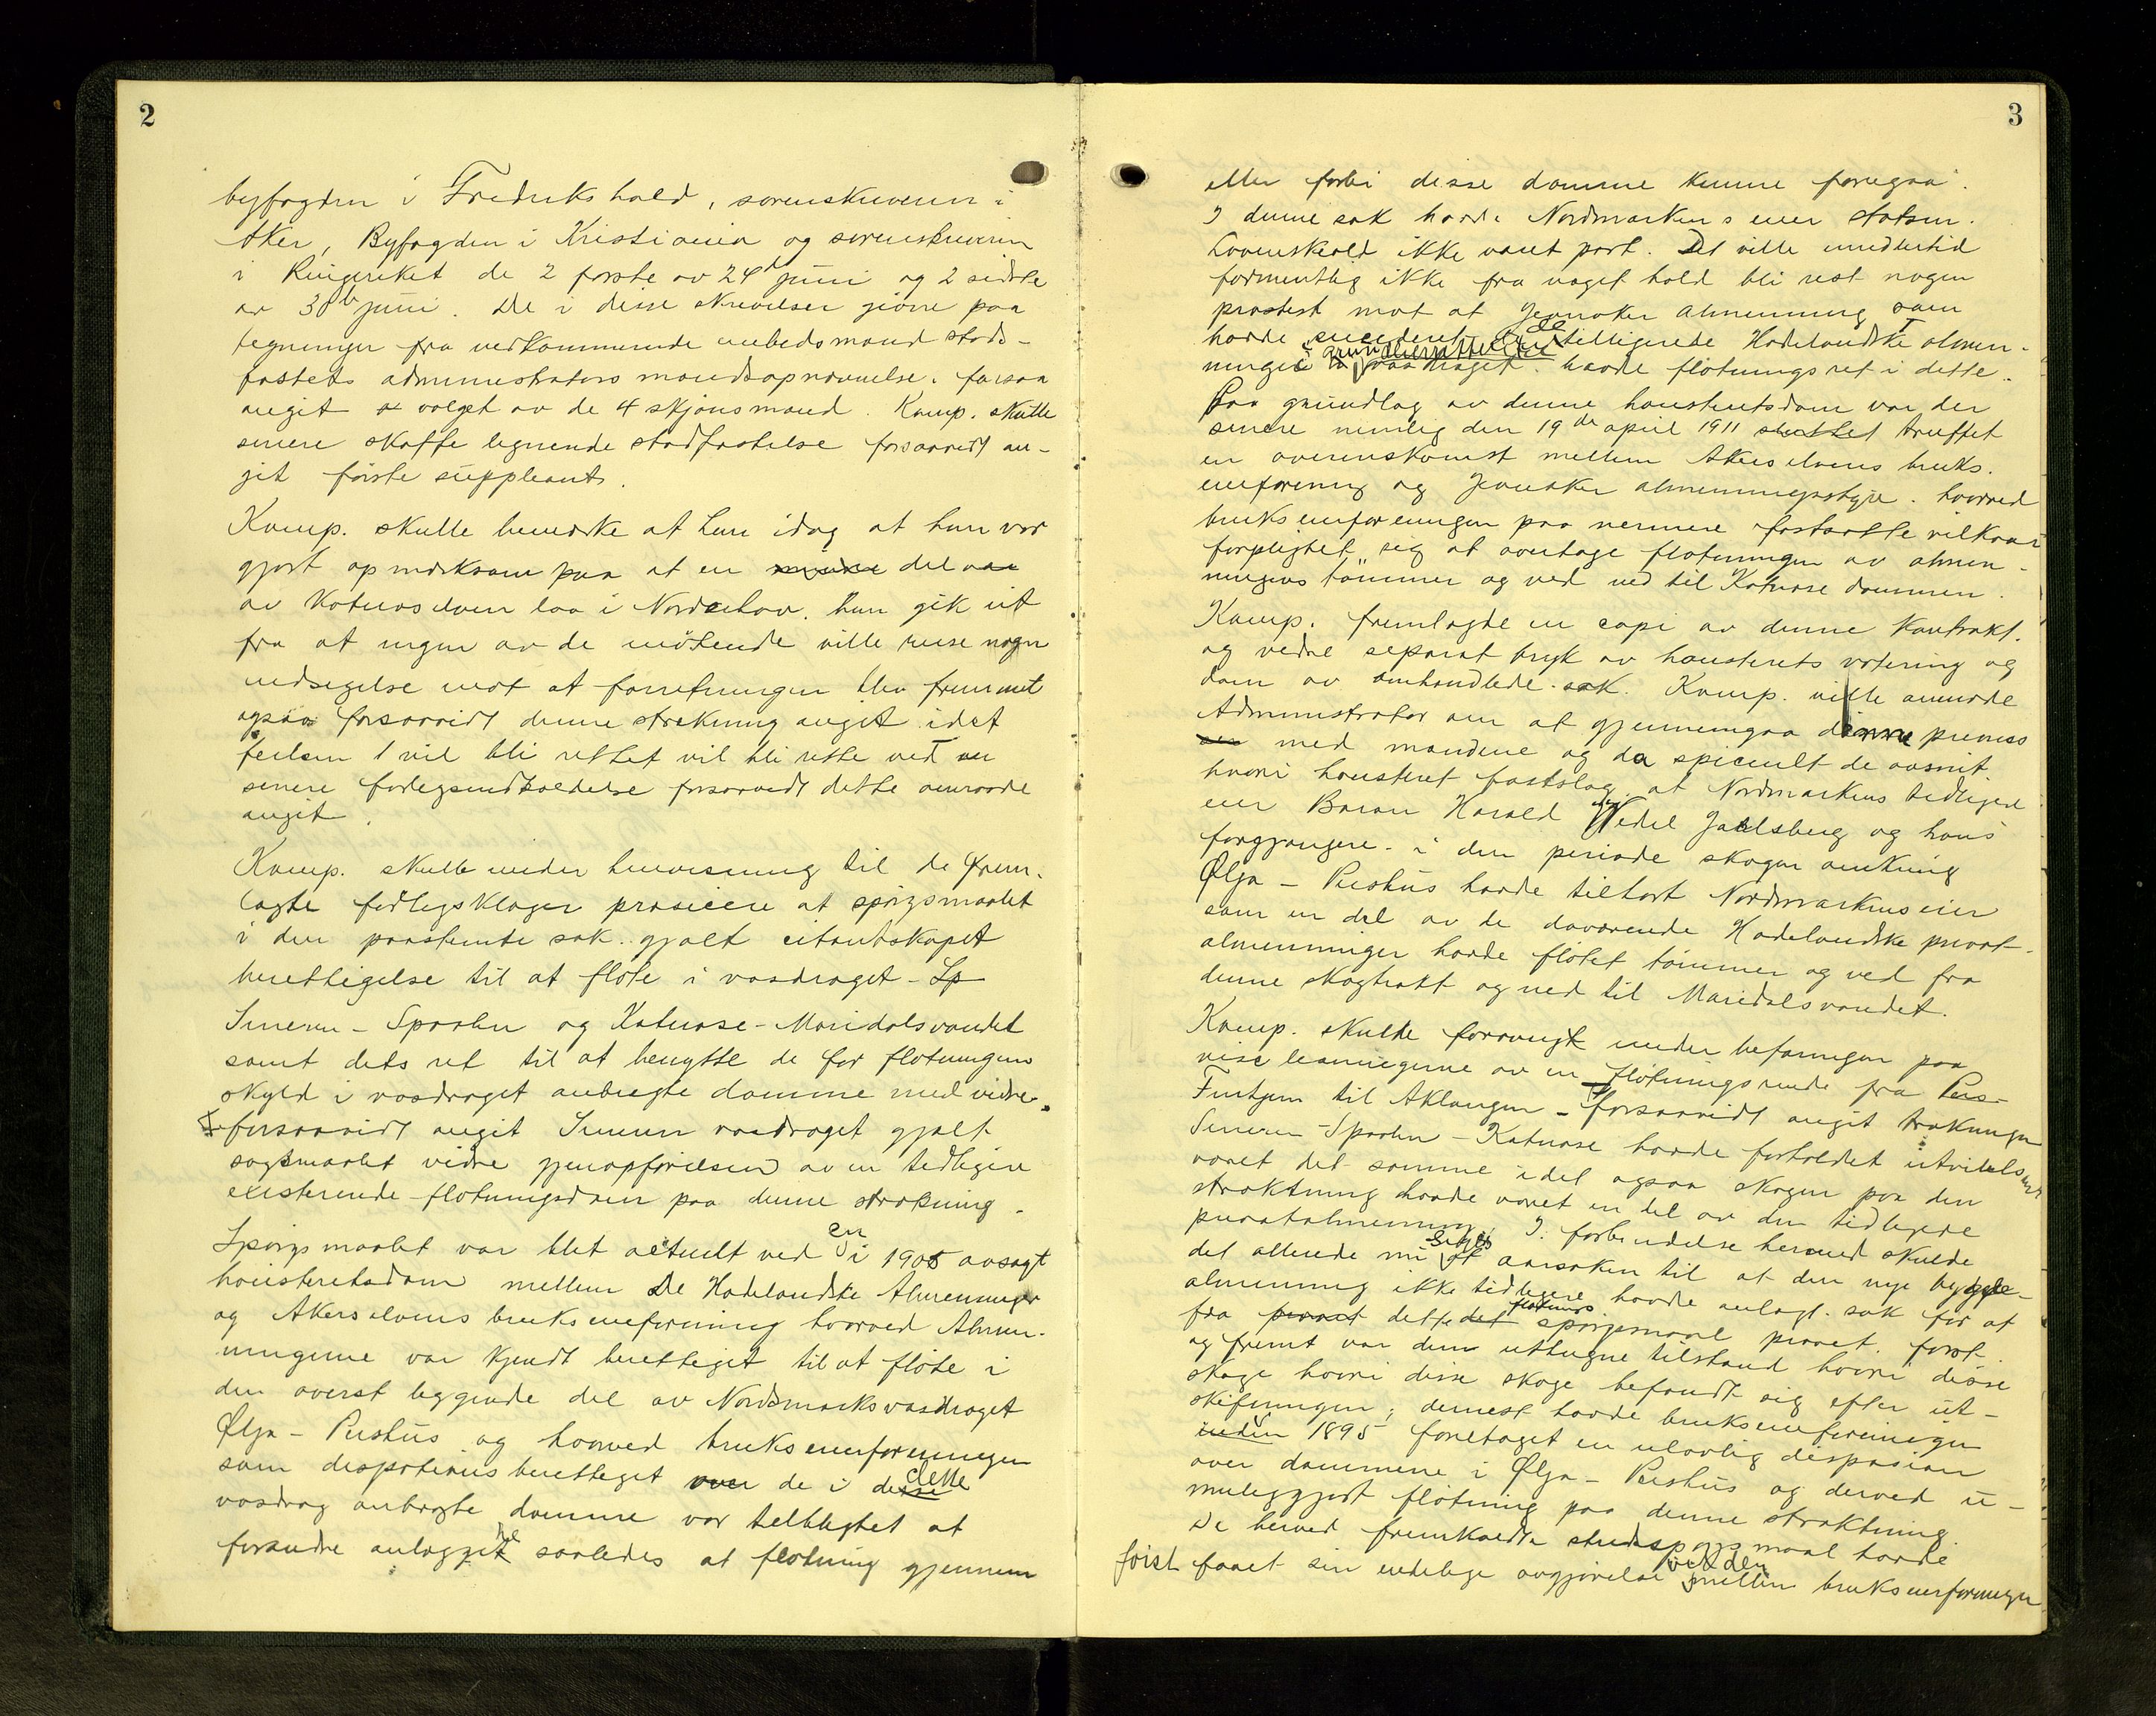 2
byfogden i Fredrikshald, sorenskriveren i
Aker, Byfogden i Kristiania og sorenskriveren
i Ringeriket de 2 første av 24de juni og 2 sidste
av 30te juni. De i disse skrivelser givne paa
tegninger fra vedkommende embedsmand stad-
fæstets administrators mandsopnævnelse. forsaa
angit valget av de 4 skjønsmænd. Komp. skulle
senere skaffe lignende stadfæstelse forsaavidt an-
git første suppleants.
Komp. skulle bemerke at han idag at han var
gjort opmerksom paa at en mindre del var
av Katnoselven laa i Norderhov. han gik ut
fra at ingen av de møtende ville reise nogen
indsigelse mot at forretningen blev fremmet
ogsaa forsaavidt denne strekning angit idet
feilen vil bli rettet vil bli rette ved en
senere forligsindkaldelse forsaavidt dette omraade
angit.
Komp. skulle under henvisning til de frem-
lagte forligsklager præsicere at spørgsmaalet
i den paastemte sak gjalt citantskapet
berettigelse til at fløte i vasdraget - Sp
Sinneren - Spaalen og Katnose - Maridalsvandet
samt dets ret til at benytte de for fløtningens
skyld i vasdraget anbragte damme med videre.
forsaavidt angit Sinneren vasdraget gjalt
søgsmaalet videre gjenopførelsen av en tidligere
existerende fløtningsdam paa denne strekning.
Spørgsmaalet var blit aktuelt ved en i 1905 avsagt
høiesteretsdom mellem De Hadelandske Almenninger
og Akerselvens brukseierforening hvorved Almen-
ningene var kjendt berettiget til at fløte i
den øverst liggende del av Nordmarksvasdraget
Ølja - Pershus og hvorved brukseierforeningen
som dispotionsberettiget over de i disse dette
vasdrag anbragte damme var tilpligtet at
forandre anlægget saaledes at fløtning gjennem
3
eller forbi disse damme kunne foregaa.
I denne sak hadde Nordmarkens eier statsm.
Løvenskiold ikke været part. Det ville imidlertid
formentlig ikke fra noget hold bli reist nogen
protest mot at Jevnaker almenning som
havde succederet de tidligere Hadelandske almen-
ninger i vasdraget havde fløtningsret i dette.
Paa grundlag av denne høiesteretsdom var der
senere nemlig den 19de april 1911 sluttet truffet
en overenskomst mellem Akerselvens bruks-
eierforening og Jevnaker almenningsstyre. hvorved
brukseierforeningen paa nermere fastsatte vilkaar
forpligtet sig at overtage fløtningen av almen-
ningens tømmer og ved ned til Katnose dammen.
Komp. fremlagde en copi av denne kontrakt.
og vedre separat tryk av høiesterets votering og
dom av omhandlede sak. Komp. ville anmode
Administrator om at gjennemgaa denne premiss
med mændene og da specielt de avsnit
hvori høiesteret fastslog at Nordmarkens tidligere
eier Baron Harald Wedel Jarlsberg og hans
forgjængere i den periode skogen omkring
Ølja - Pershus havde tilhørt Nordmarkens eier
som en del av de daværende Hadelandske privat-
almenninger havde fløtet tømmer og ved fra
denne skogtrakt og ned til Maridalsvandet.
Komp. skulde forøvrigt under befaringen paa
vise levningerne av en fløtningsrende fra Pers-
Fintjern til Aklangen - forsaavidt angit strekningen
Sinneren - Spaalen - Katnose havde forholdet utvilsomt
været det samme idet ogsaa skogen paa den
strækning havde været en del av den tidligere
privatalmenning. I forbindelse hermed skulde
det allerede nu siges at aarsaken til at den nye bygde-
almenning ikke tidligere havde anlagt sak for at
fra privat dette det fløtnings spørgsmaal prøvet. først
og fremst var den uttugne tilstand hvori disse
skoge hvori disse skoge befandt sig efter ut-
skiftningen; dernest havde brukseierforeningen
inden 1895 foretaget en ulovlig disposion
over dammene i Ølja - Pershus og derved u-
muliggjort fløtning paa denne strækning.
De herved fremkaldte stridsspørgsmaal havde
først faaet sin endelige avgjørelse ved den mellem brukseierforeningen